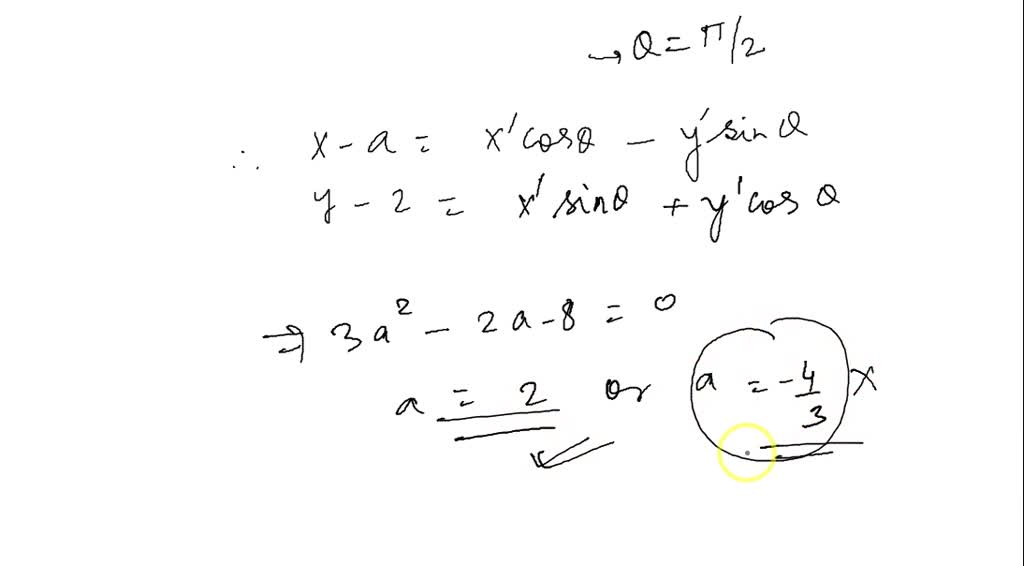 → θ = π/2
∴ x - a = x' cosθ - y' sin θ
y - 2 = x' sinθ + y' cos θ
⇒ 3a² - 2a - 8 = 0
a = 2 or a = -4/3 x